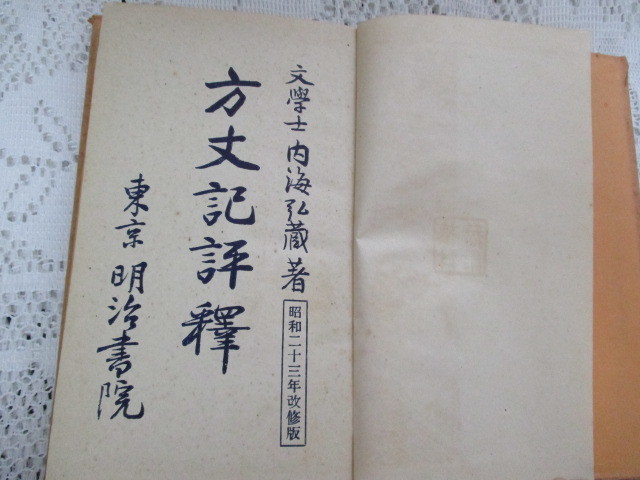 文學士 内海弘蔵著
昭和二十三年改修版
方丈記評釋
東京 明治書院